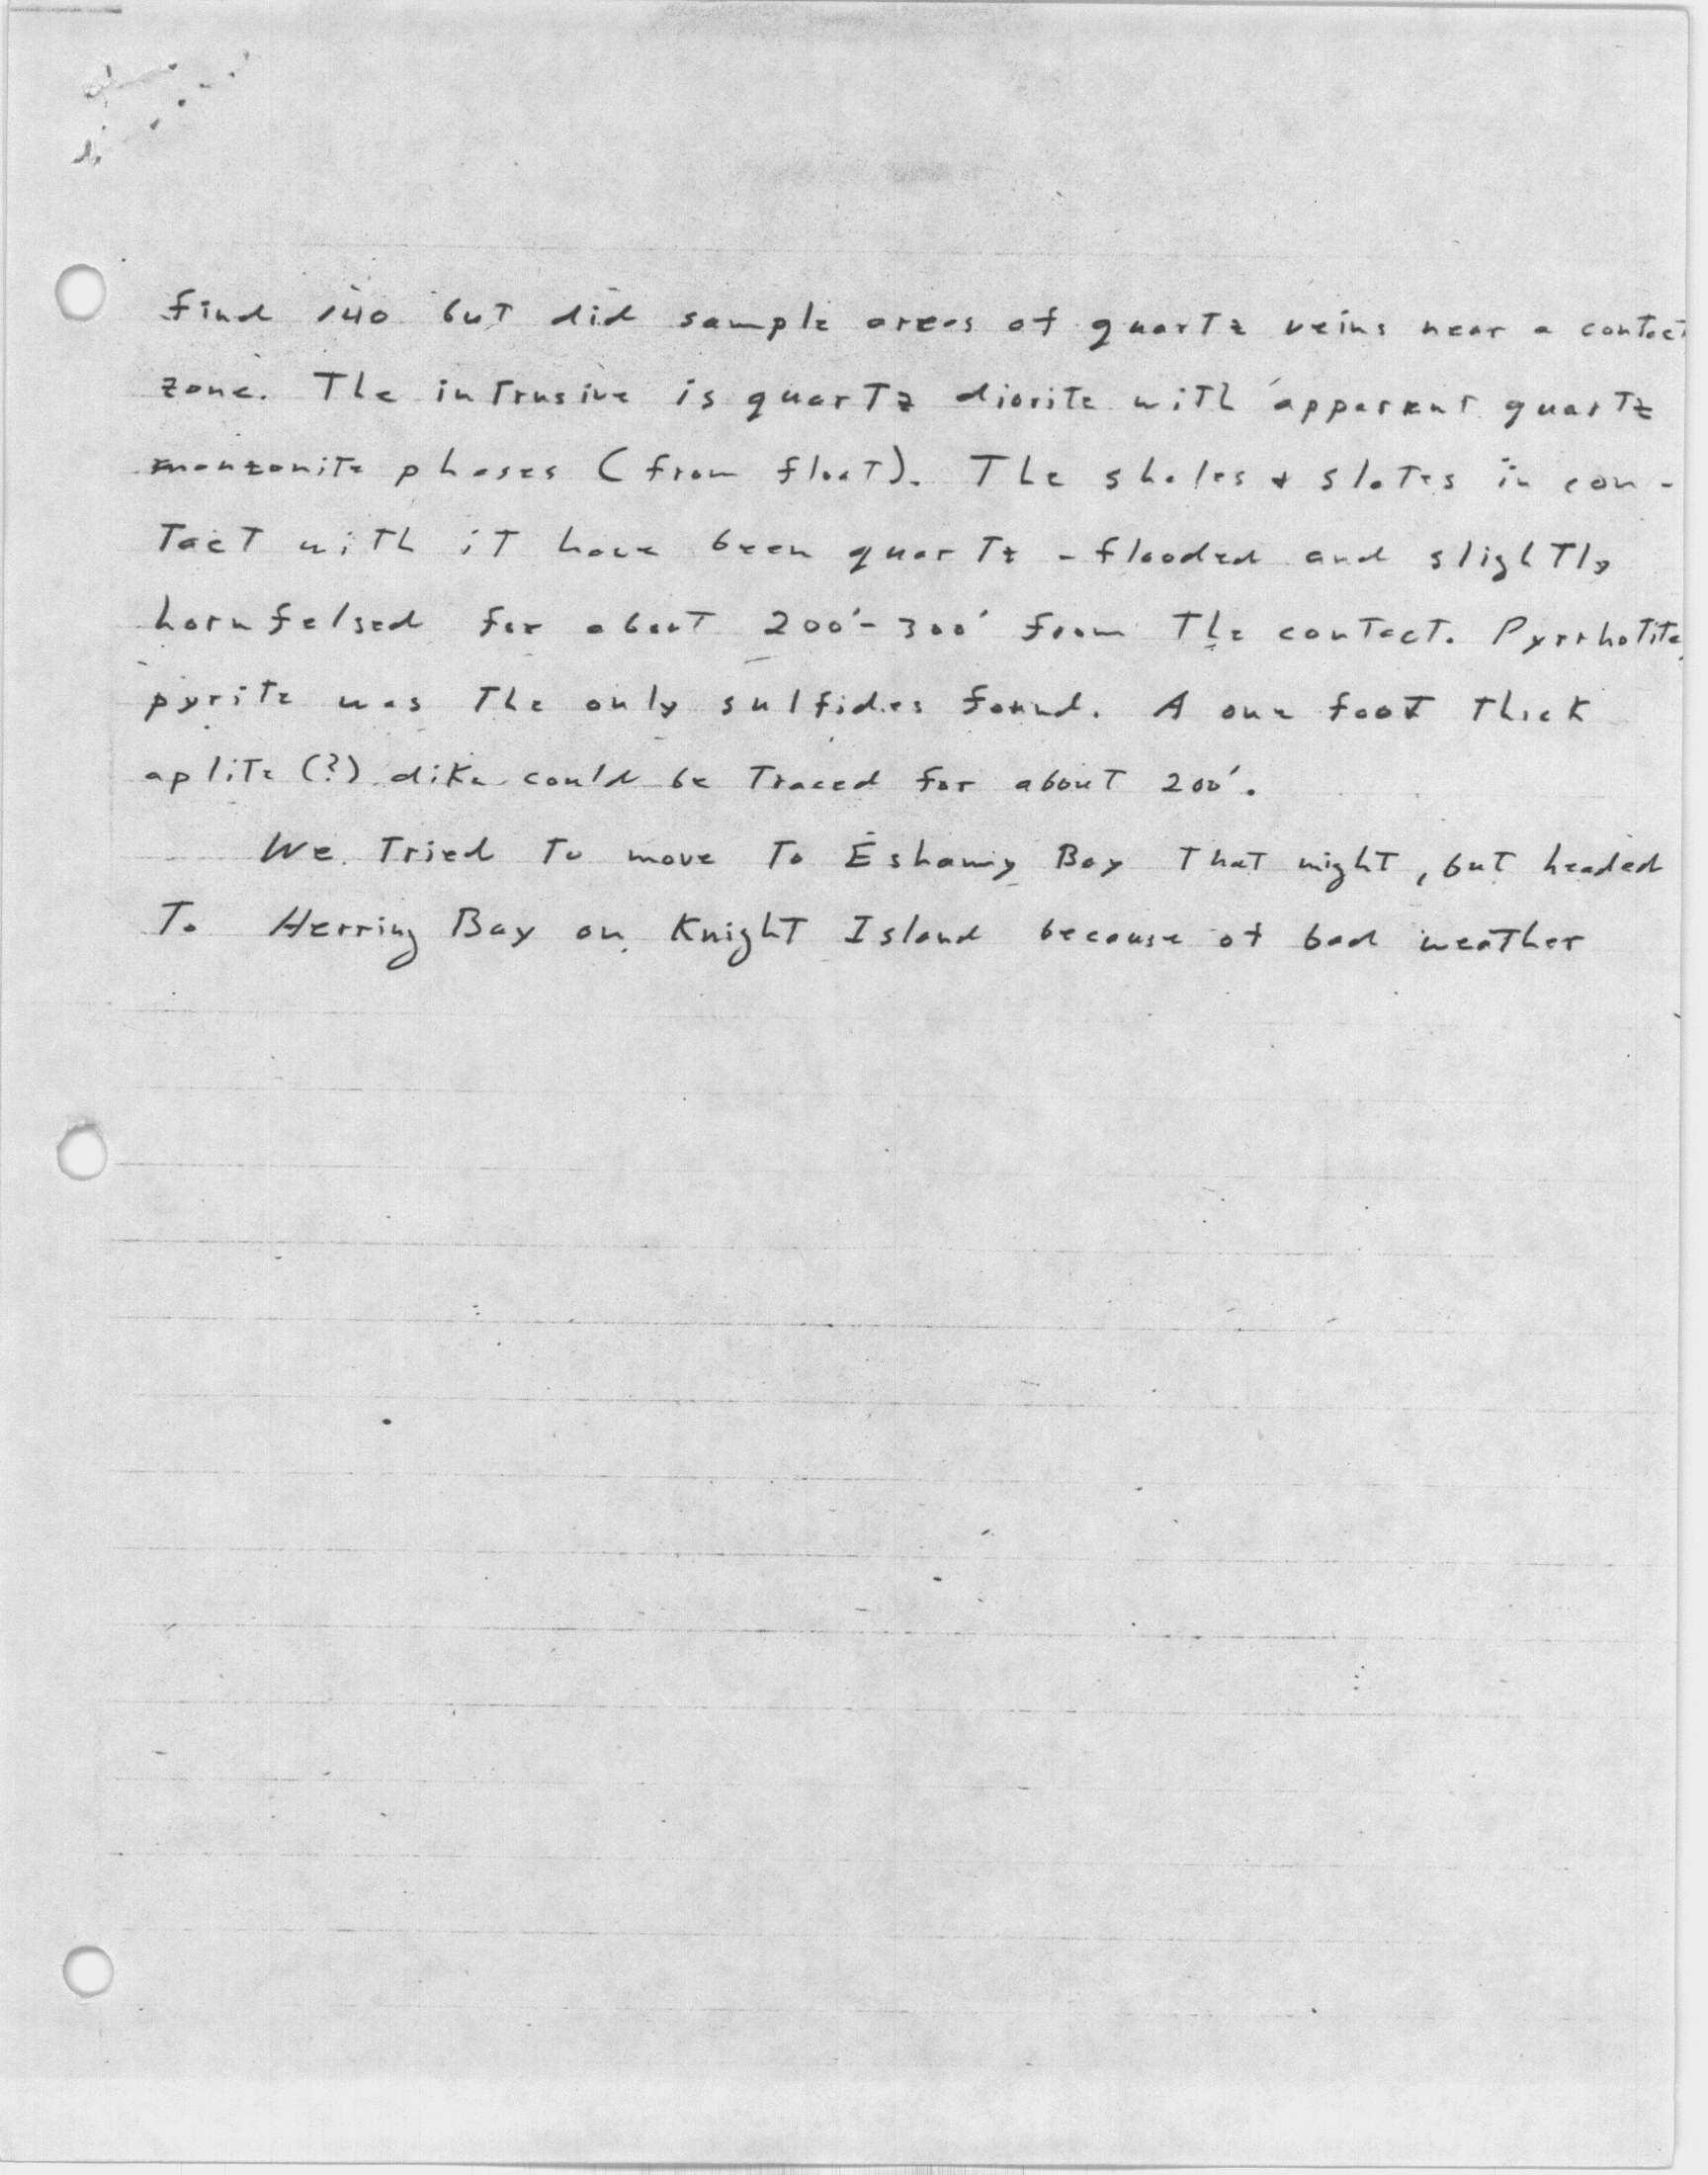 find 140 but did sample areas of quartz veins near a contact
zone. The intrusive is quartz diorite with apparent quartz
monzonite phases (from float). The shales + slates in con-
tact with it have been quartz-flooded and slightly
hornfelsed for about 200'-300' from the contact. Pyrrhotite,
pyrite was the only sulfides found. A one foot thick
aplite (?) dike could be traced for about 200'.
We tried to move to Eshamy Bay that night, but headed
To Herring Bay on Knight Island because of bad weather